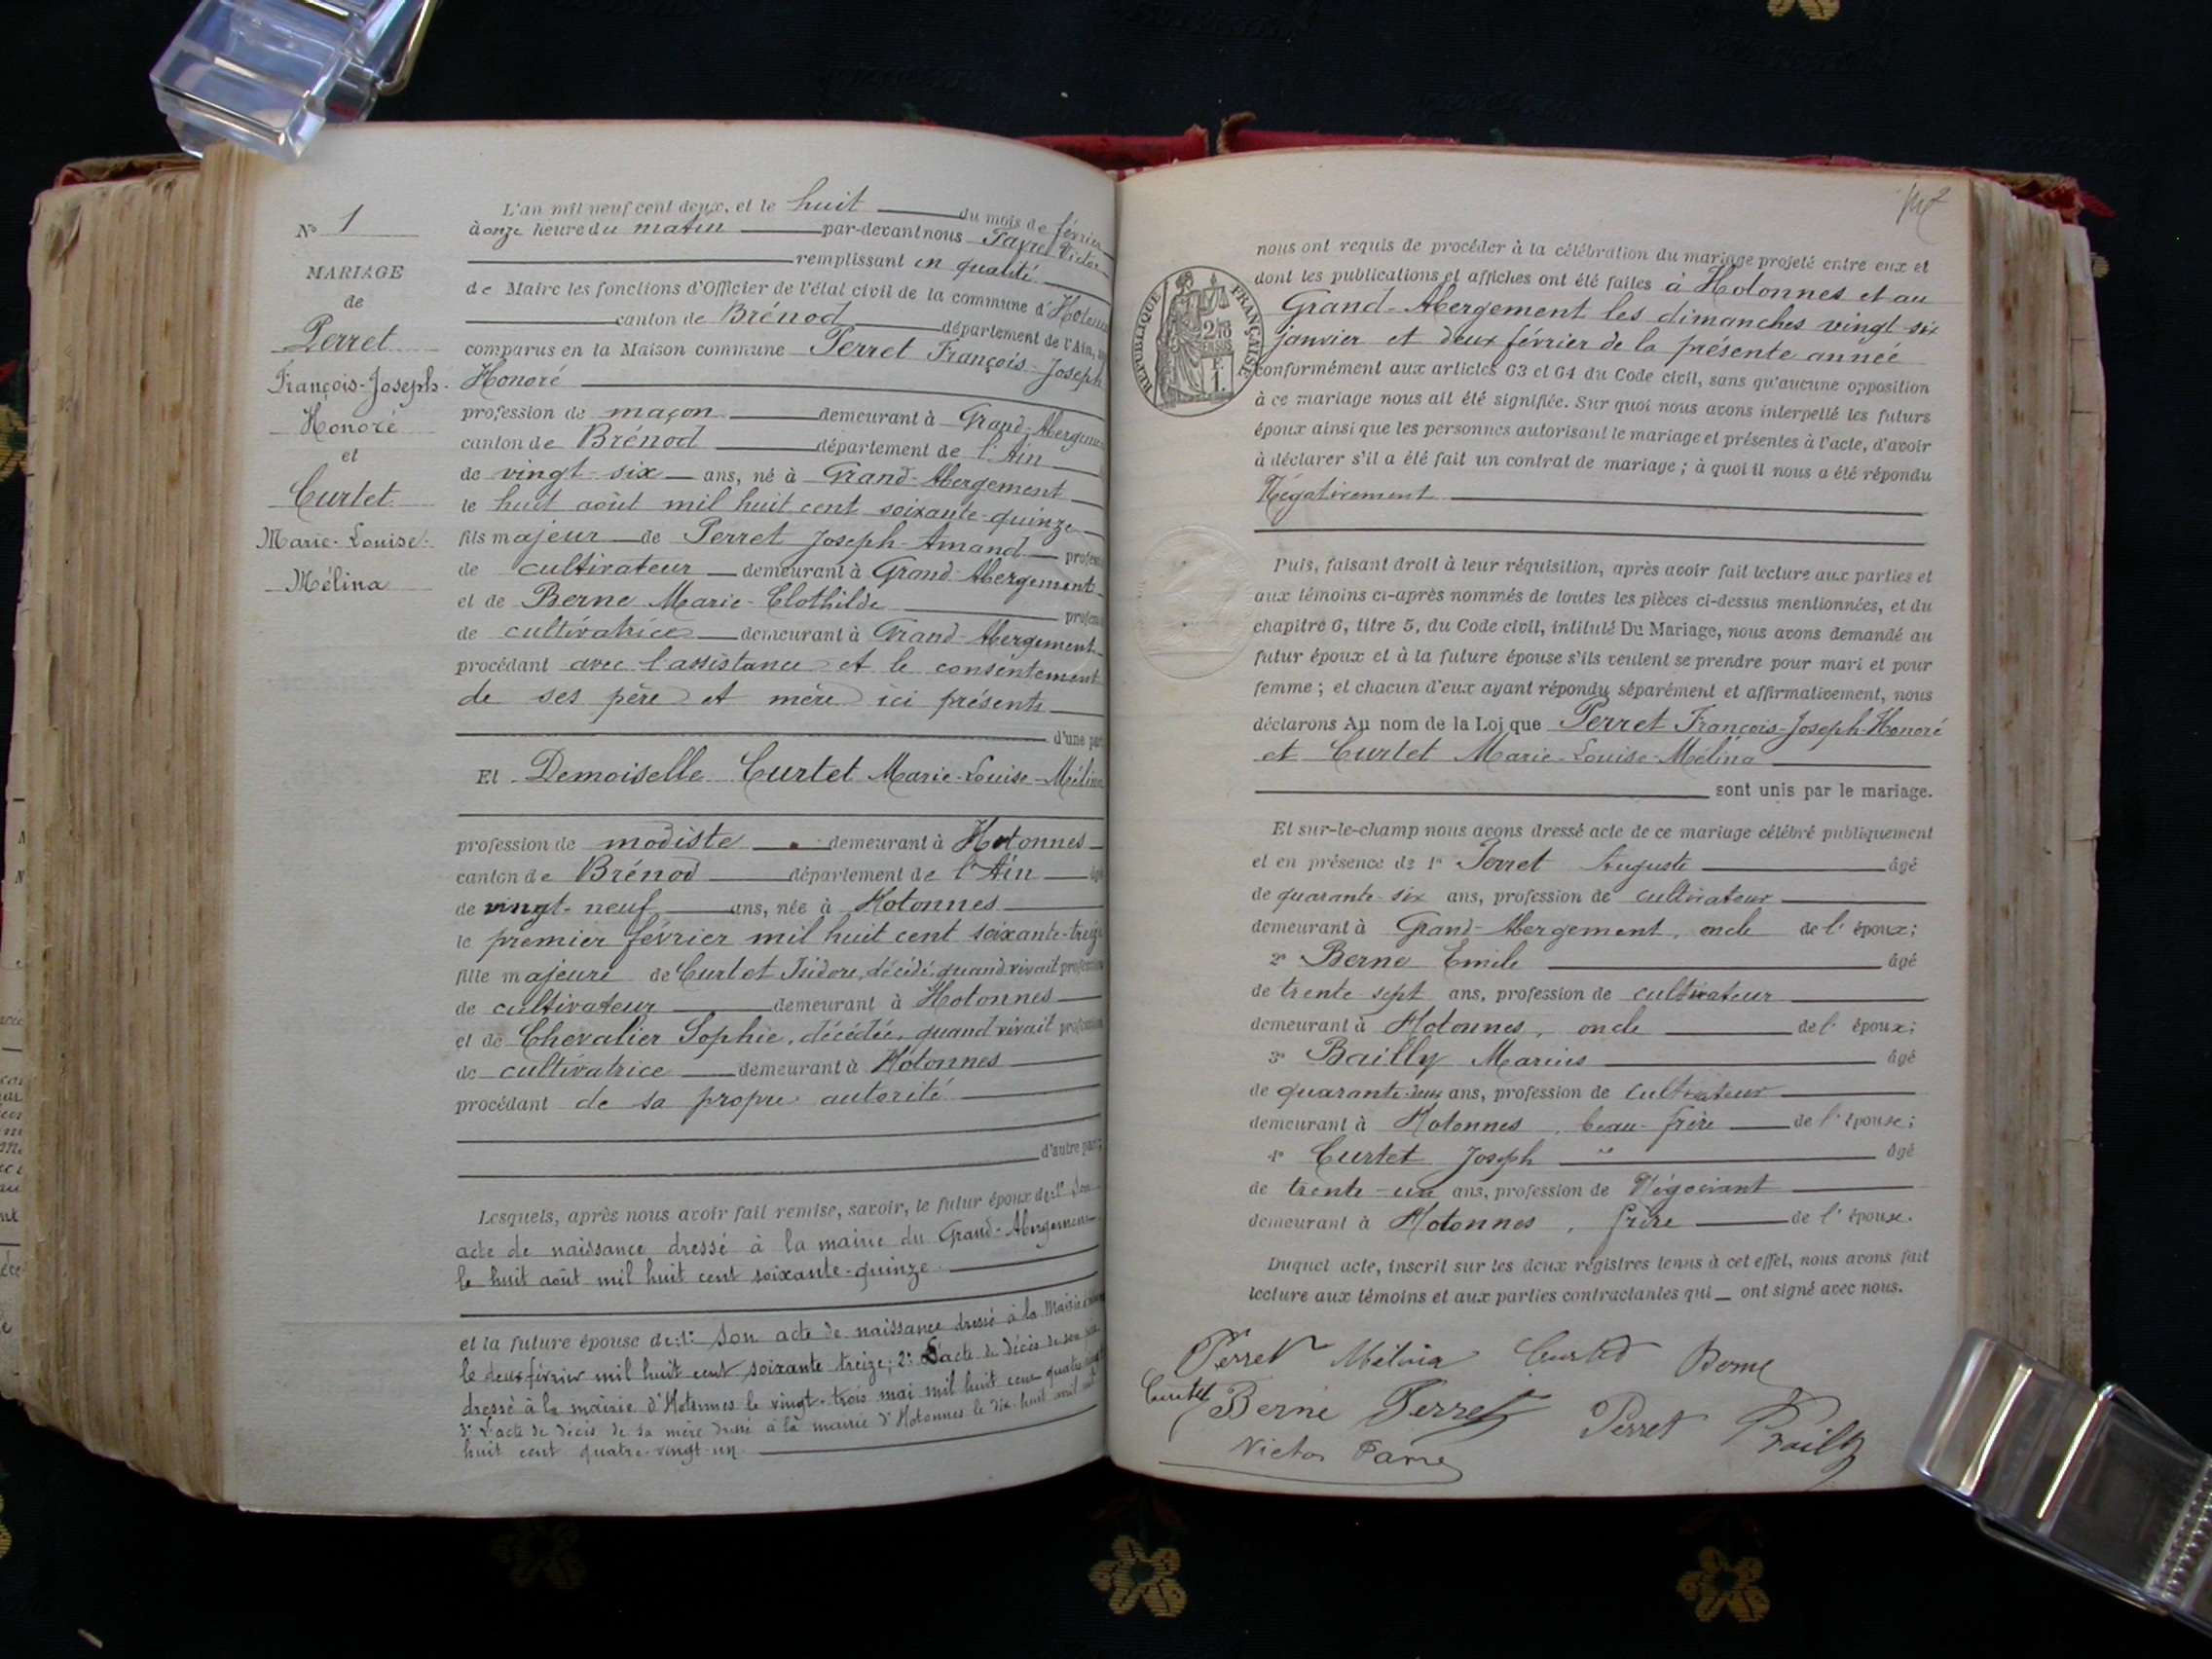 N° 1
MARIAGE
de
Perret
François-Joseph-
Honoré
et
Curtet
Marie-Louise-
Mélina
L'an mil neuf cent deux, et le huit du mois de février
à onze heure du matin par-devant nous Victor
remplissant en qualité
de Maire les fonctions d'Officier de l'état civil de la commune d'Hotonnes
canton de Brénod département de l'Ain,
comparus en la Maison commune Perret François-Joseph
Honoré
profession de maçon demeurant à Grand-Abergement
canton de Brénod département de l'Ain
de vingt-six ans, né à Grand-Abergement
le huit août mil huit cent soixante-quinze
fils majeur de Perret Joseph-Amand profession
de cultivateur demeurant à Grand-Abergement
et de Berne Marie-Clothilde profession
de cultivatrice demeurant à Grand-Abergement
procédant avec l'assistance et le consentement
de ses père et mère ici présents
d'une part
Et Demoiselle Curtet Marie-Louise-Mélina
profession de modiste demeurant à Hotonnes
canton de Brénod département de l'Ain âgée
de vingt-neuf ans, née à Hotonnes
le premier février mil huit cent soixante-treize
fille majeure de Curtet Isidore, décédé, quand vivait profession
de cultivateur demeurant à Hotonnes
et de Chevalier Sophie, décédée, quand vivait profession
de cultivatrice demeurant à Hotonnes
procédant de sa propre autorité
d'autre part;
Lesquels, après nous avoir fait remise, savoir, le futur époux de: 1° Son
acte de naissance dressé à la mairie du Grand-Abergement
le huit août mil huit cent soixante-quinze
et la future épouse de: 1° Son acte de naissance dressé à la Mairie
le deux février mil huit cent soixante treize; 2° L'acte de décès de son père
dressé à la mairie d'Hotonnes le vingt-trois mai mil huit cent quatre-vingt
3° L'acte de décès de sa mère dressé à la mairie d'Hotonnes le dix-huit mil
huit cent quatre-vingt-un
nous ont requis de procéder à la célébration du mariage projeté entre eux et
dont les publications et affiches ont été faites à Hotonnes et au
Grand-Abergement les dimanches vingt-six
janvier et deux février de la présente année
conformément aux articles 63 et 64 du Code civil, sans qu'aucune opposition
à ce mariage nous ait été signifiée. Sur quoi nous avons interpellé les futurs
époux ainsi que les personnes autorisant le mariage et présentes à l'acte, d'avoir
à déclarer s'il a été fait un contrat de mariage; à quoi il nous a été répondu
Négativement
RÉPUBLIQUE FRANÇAISE
2/10
EN SUS
F
1.
Puis, faisant droit à leur réquisition, après avoir fait lecture aux parties et
aux témoins ci-après nommés de toutes les pièces ci-dessus mentionnées, et du
chapitre 6, titre 5, du Code civil, intitulé Du Mariage, nous avons demandé au
futur époux et à la future épouse s'ils veulent se prendre pour mari et pour
femme; et chacun d'eux ayant répondu séparément et affirmativement, nous
déclarons Au nom de la Loi que Perret François-Joseph-Honoré
et Curtet Marie-Louise-Mélina
sont unis par le mariage.
Et sur-le-champ nous avons dressé acte de ce mariage célébré publiquement
et en présence de 1° Perret Auguste âgé
de quarante-six ans, profession de cultivateur
demeurant à Grand-Abergement, oncle de l'époux;
2° Berne Emile âgé
de trente-sept ans, profession de cultivateur
demeurant à Hotonnes, oncle de l'époux;
3° Bailly Marius âgé
de quarante-deux ans, profession de cultivateur
demeurant à Hotonnes, beau-frère de l'épouse;
4° Curtet Joseph âgé
de trente-un ans, profession de Négociant
demeurant à Hotonnes, frère de l'épouse.
Duquel acte, inscrit sur les deux registres tenus à cet effet, nous avons fait
lecture aux témoins et aux parties contractantes qui ont signé avec nous.
Perret Mélina Curtet Berne
Curtet Berne Perret Perret Bailly
Victor